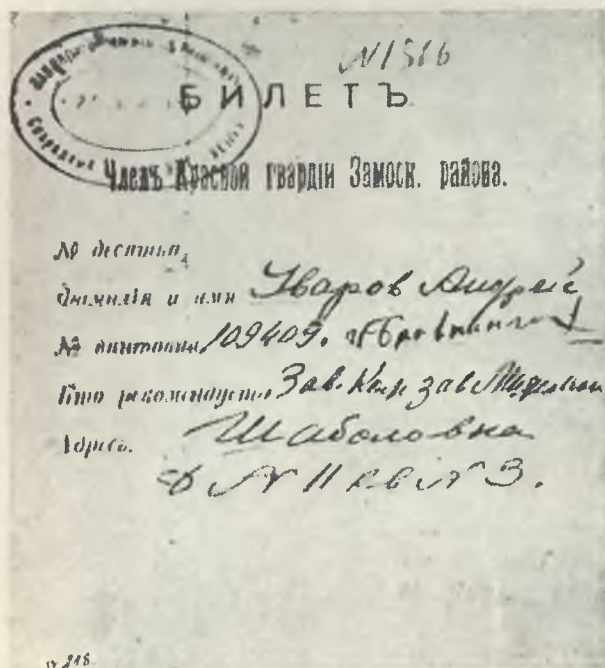 № 1516
БИЛЕТЪ
Членъ Красной гвардіи Замоск. района.
№ десятка
Фамилія и имя Уваров Андрей
№ винтовки 109409.
Кто рекомендуетъ Зав. Ком. зав.
Адресъ. Шаболовка
д № 11 кв № 3.